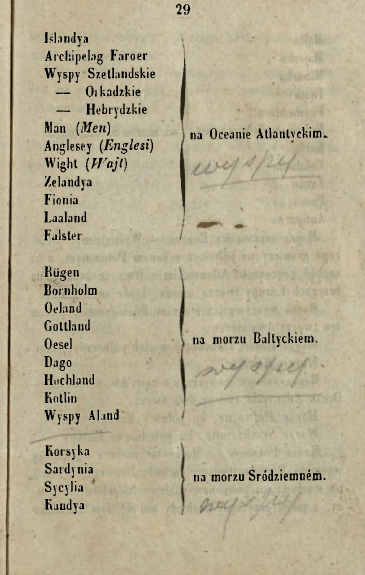 29
Islandya
Archipelag Faroer
Wyspy Szetlandskie
— Orkadzkie
— Hebrydzkie
Man (Men)
Anglesey (Englesi)
Wight (Wajt)
Zelandya
Fionia
Laaland
Falster
na Oceanie Atlantyckim.
wyspy
Rügen
Bornholm
Oeland
Gottland
Oesel
Dago
Hochland
Kotlin
Wyspy Aland
na morzu Baltyckiem.
wyspy
Korsyka
Sardynia
Sycylia
Kandya
na morzu Śródziemném.
wyspy